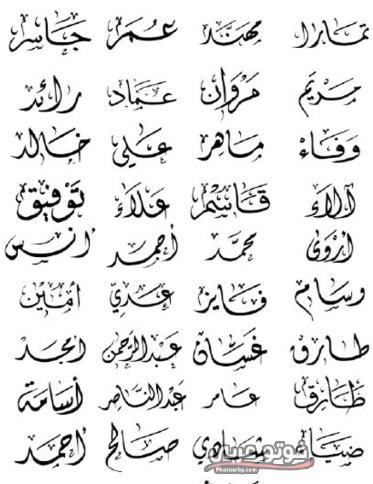 تمارا مهنّد عُمَر جَاسر
مَريَم مَرْوَان عمَاد رائد
وَفَاءْ مَاهر عَلي خَالد
آلاءَ قَاسْم عَلاءُ تَوْفيق
أرْوَى محمَّد أحمد أنس
وسَام فَايز عَديّ أمين
طارق غسَّان عَبدالرَّحمن امجَد
طَارق عَامر عَبدالنَّاصر أسَامَة
ضيَاء شَادي صَالح أحمَد
فوتو عربي
Photoarby.com